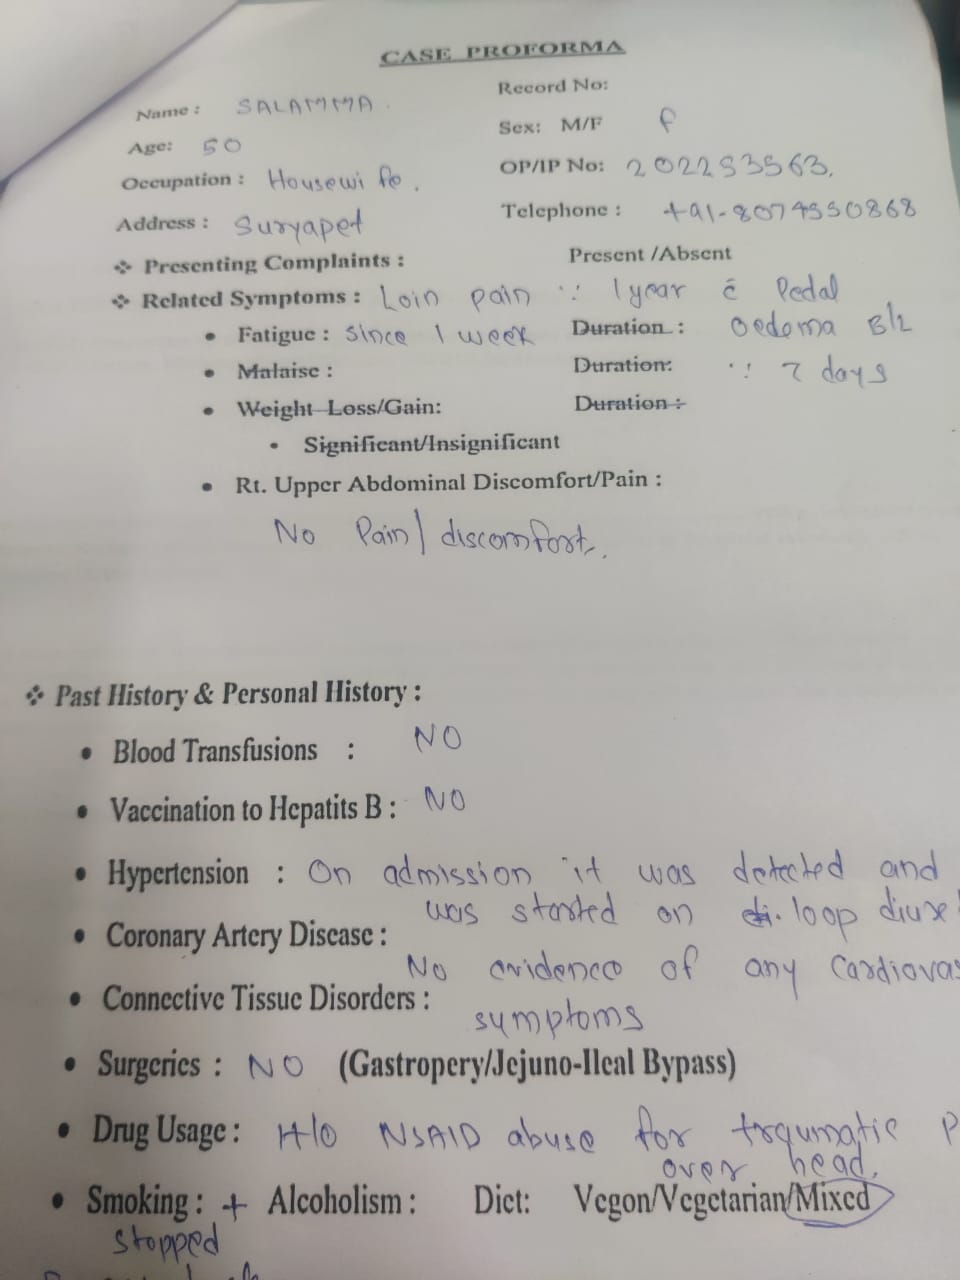 CASE PROFORMA
Name : SALAMMA. Record No:
Age: 50 Sex: M/F F
Occupation : Housewife. OP/IP No: 202253563.
Address : Suryapet Telephone : +91-8074550868
❖ Presenting Complaints : Present /Absent
❖ Related Symptoms : Loin pain ∵ 1 year c̄ Pedal
• Fatigue : Since 1 week Duration : Oedema B/L
• Malaise : Duration: ∵ 7 days
• Weight Loss/Gain: Duration :
• Significant/Insignificant
• Rt. Upper Abdominal Discomfort/Pain :
No Pain/discomfort.
❖ Past History & Personal History :
• Blood Transfusions : NO
• Vaccination to Hepatits B : NO
• Hypertension : On admission it was detected and
was started on loop
• Coronary Artery Disease :
No evidence of any
• Connective Tissue Disorders :
symptoms
• Surgeries : NO (Gastropery/Jejuno-Ileal Bypass)
• Drug Usage : H/o NSAID abuse for traumatic
over head.
• Smoking : + Alcoholism : Diet: Vegon/Vegetarian/Mixed
stopped